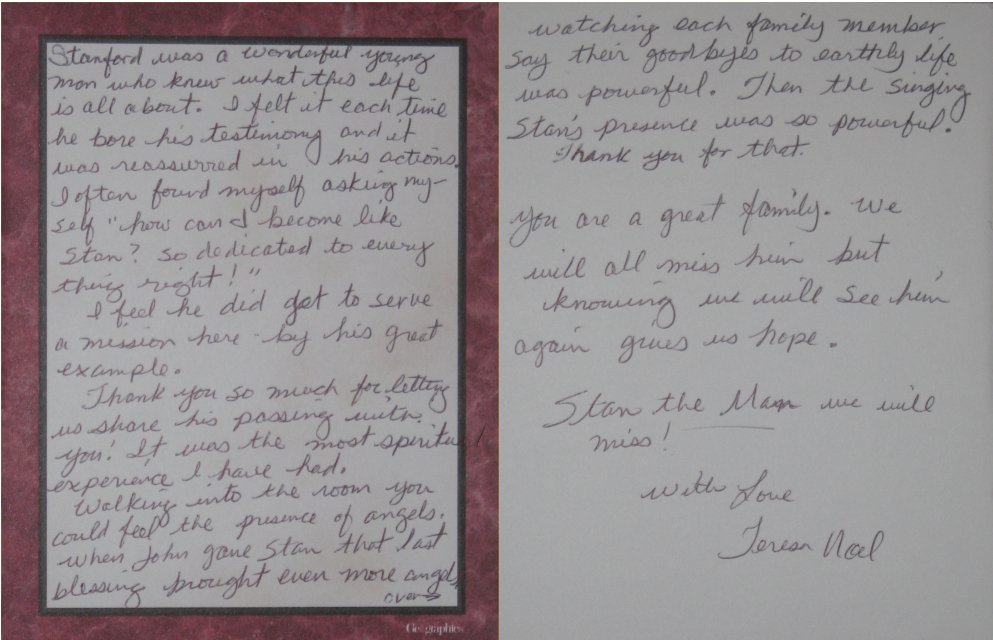 Stanford was a wonderful young
man who knew what this life
is all about. I felt it each time
he bore his testimony and it
was reassurred in his actions.
I often found myself asking my-
self "how can I become like
Stan? so dedicated to every
thing right!"
I feel he did get to serve
a mission here - by his great
example.
Thank you so much for letting
us share his passing with
you! It was the most spiritual
experience I have had.
Walking into the room you
could feel the presence of angels.
when John gave Stan that last
blessing brought even more angels
over→
Geographics
watching each family member
say their goodbyes to earthly life
was powerful. Then the singing
Stan's presence was so powerful.
Thank you for that.
You are a great family. We
will all miss him but
knowing we will see him
again gives us hope.
Stan the Man we will
miss!
With Love
Teresa Noel